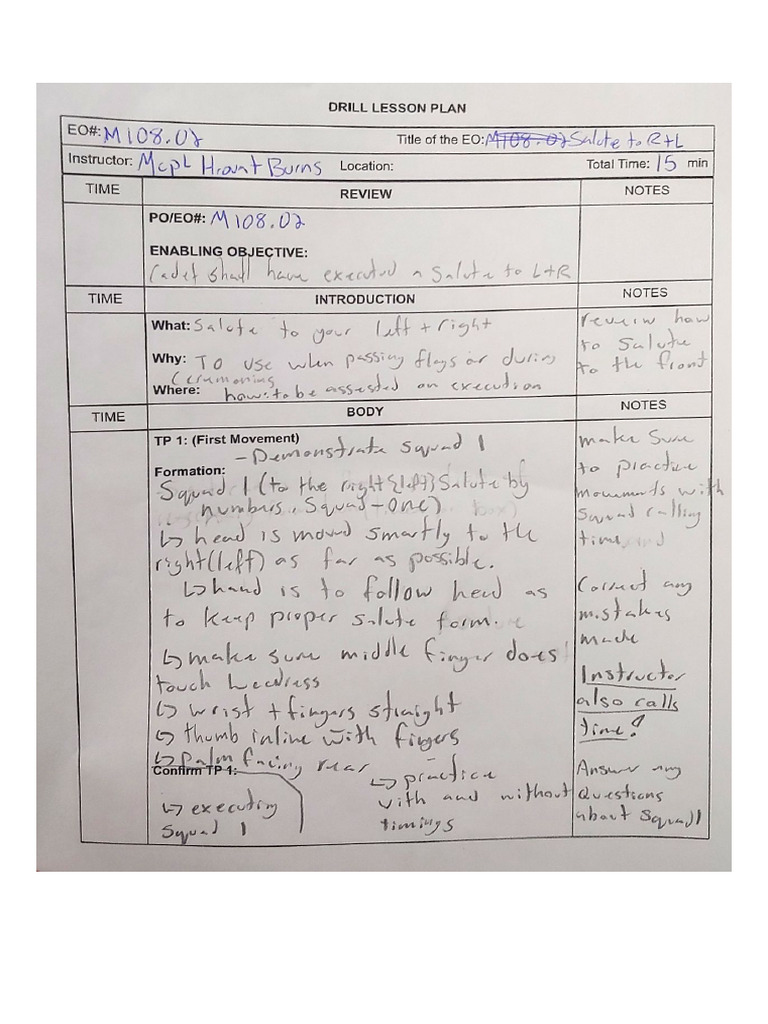 DRILL LESSON PLAN
EO#: M108.02 Title of the EO: M108.02 Salute to R+L
Instructor: Mcpl Hrount Burns Location: Total Time: 15 min
TIME REVIEW NOTES
PO/EO#: M108.02
ENABLING OBJECTIVE:
Cadet shall have executed a Salute to L+R
TIME INTRODUCTION NOTES
What: Salute to your left + right
Why: To use when passing flags or during
Cerumonies
Where: how: to be assested on execution
reveiw how
to Salute
to the front
TIME BODY NOTES
TP 1: (First Movement)
- Demonstrate Squad 1
Formation:
Squad 1 (to the right{left} Salute by
numbers, Squad - One)
↳ head is moved smartly to the
right(left) as far as possible.
↳ hand is to follow head as
to keep proper salute form.
↳ make sure middle finger does
touch headress
↳ wrist + fingers straight
↳ thumb inline with fingers
↳ palm facing rear
Confirm TP 1:
↳ executing
Squad 1
↳ practice
with and without
timings
make Sure
to practice
movements with
Squad calling
time
Correct any
mistakes
made
Instructor
also calls
time!
Answer any
Questions
about Squad 1